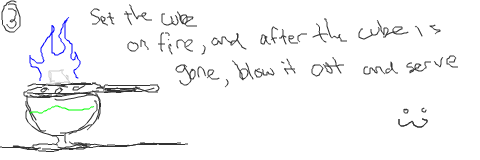 3
Set the cube
on fire, and after the cube is
gone, blow it out and serve